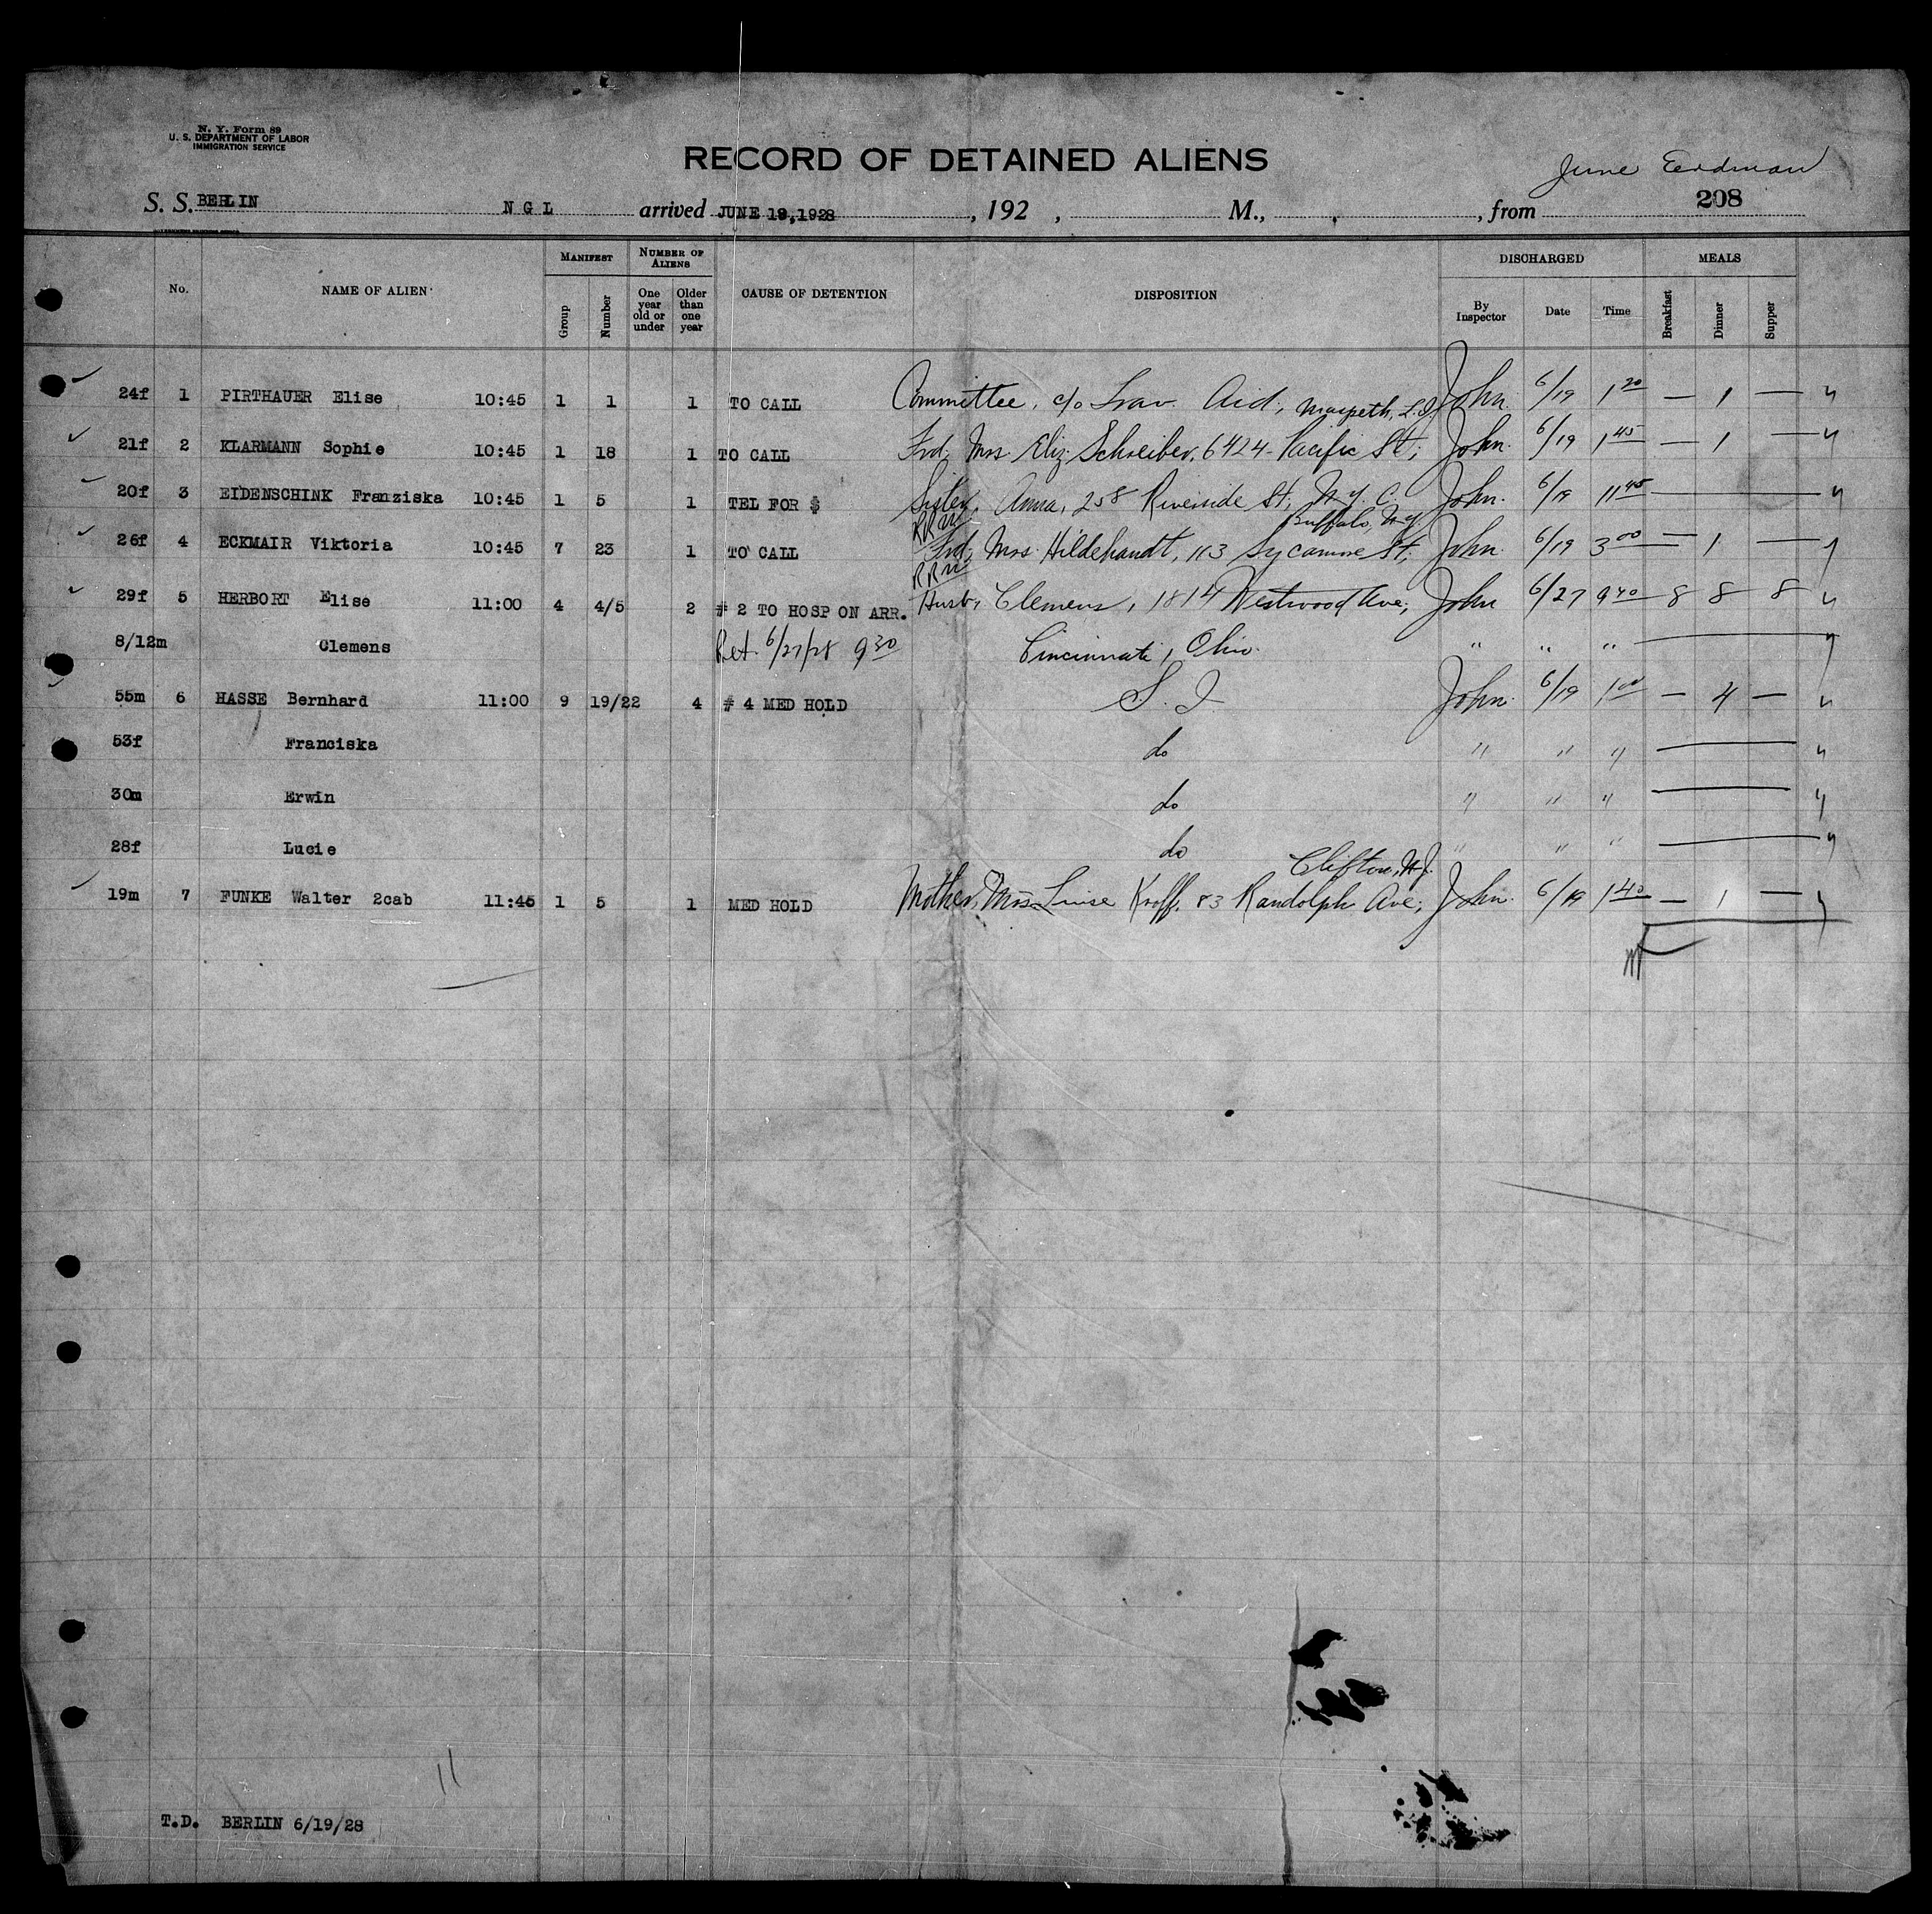 N. Y. Form 89
U. S. DEPARTMENT OF LABOR
IMMIGRATION SERVICE
RECORD OF DETAINED ALIENS
June Eerdman
208
S. S. BERLIN N G L arrived JUNE 19,1928, 192 , M., , from
No. NAME OF ALIEN MANIFEST Group Number NUMBER OF ALIENS One year old or under Older than one year CAUSE OF DETENTION DISPOSITION DISCHARGED By Inspector Date Time MEALS Breakfast Dinner Supper
24f 1 PIRTHAUER Elise 10:45 1 1 1 TO CALL Committee, c/o Trav. Aid, John. 6/19 1 20 — 1 —
Maspeth, L.I.
21f 2 KLARMANN Sophie 10:45 1 18 1 TO CALL Frd, Mrs. Eliz. Schreiber, 6424 Pacific St; John. 6/19 1 45 — 1 —
20f 3 EIDENSCHINK Franziska 10:45 1 5 1 TEL FOR $ Sister, Anna, 258 Riverside St; N.Y.C. John. 6/19 11 45
RRW Buffalo, N.Y.
26f 4 ECKMAIR Viktoria 10:45 7 23 1 TO CALL Frd, Mrs Hildebrandt, 113 Sycamore St, John. 6/19 3 00 — 1 —
RRW
29f 5 HERBORT Elise 11:00 4 4/5 2 # 2 TO HOSP ON ARR. Husb, Clemens, 1814 Westwood Ave, John 6/27 9 40 8 8 8
8/12m Clemens Ret. 6/27/28 9 30 Cincinnati, Ohio. " " "
55m 6 HASSE Bernhard 11:00 9 19/22 4 # 4 MED HOLD S. I John. 6/19 1 00 — 4 —
53f Franciska do " " "
30m Erwin do " " "
28f Lucie do " " "
Clifton, N.J.
19m 7 FUNKE Walter 2cab 11:45 1 5 1 MED HOLD Mother, Mrs Luise Kroff, 83 Randolph Ave, John. 6/19 1 40 — 1 —
11
T.D. BERLIN 6/19/28